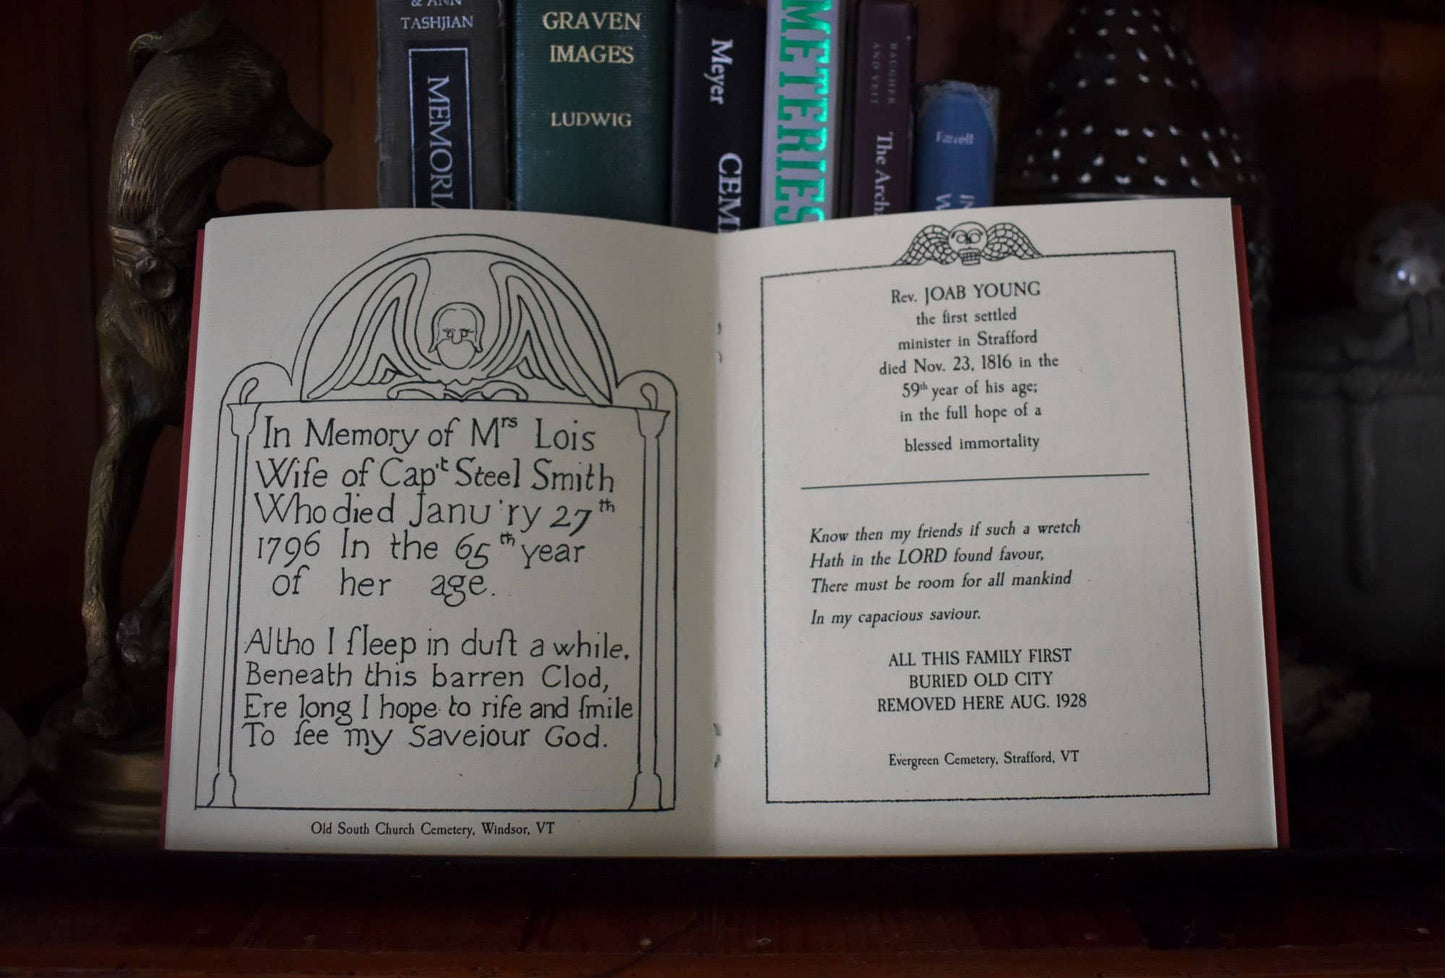 & ANN
TASHJIAN
MEMORIA
GRAVEN
IMAGES
LUDWIG
Meyer
CEM
METERIES
DAUGHER
AND VEIT
The Arch
Farrell
In Memory of Mrs Lois
Wife of Cap't Steel Smith
Who died Janu'ry 27th
1796 In the 65th year
of her age.
Altho I ſleep in duſt a while,
Beneath this barren Clod,
Ere long I hope to riſe and ſmile
To ſee my Saveiour God.
Old South Church Cemetery, Windsor, VT
Rev. JOAB YOUNG
the first settled
minister in Strafford
died Nov. 23, 1816 in the
59th year of his age;
in the full hope of a
blessed immortality
Know then my friends if such a wretch
Hath in the LORD found favour,
There must be room for all mankind
In my capacious saviour.
ALL THIS FAMILY FIRST
BURIED OLD CITY
REMOVED HERE AUG. 1928
Evergreen Cemetery, Strafford, VT